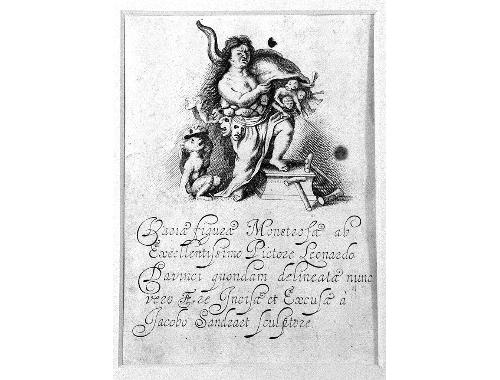 Variæ figuræ Monstrosæ ab
Excellentissimo Pictore Leonardo
Davinci quondam delineatæ nunc
vero Ære Incisæ et Excusæ à
Jacobo Sandraet sculptore